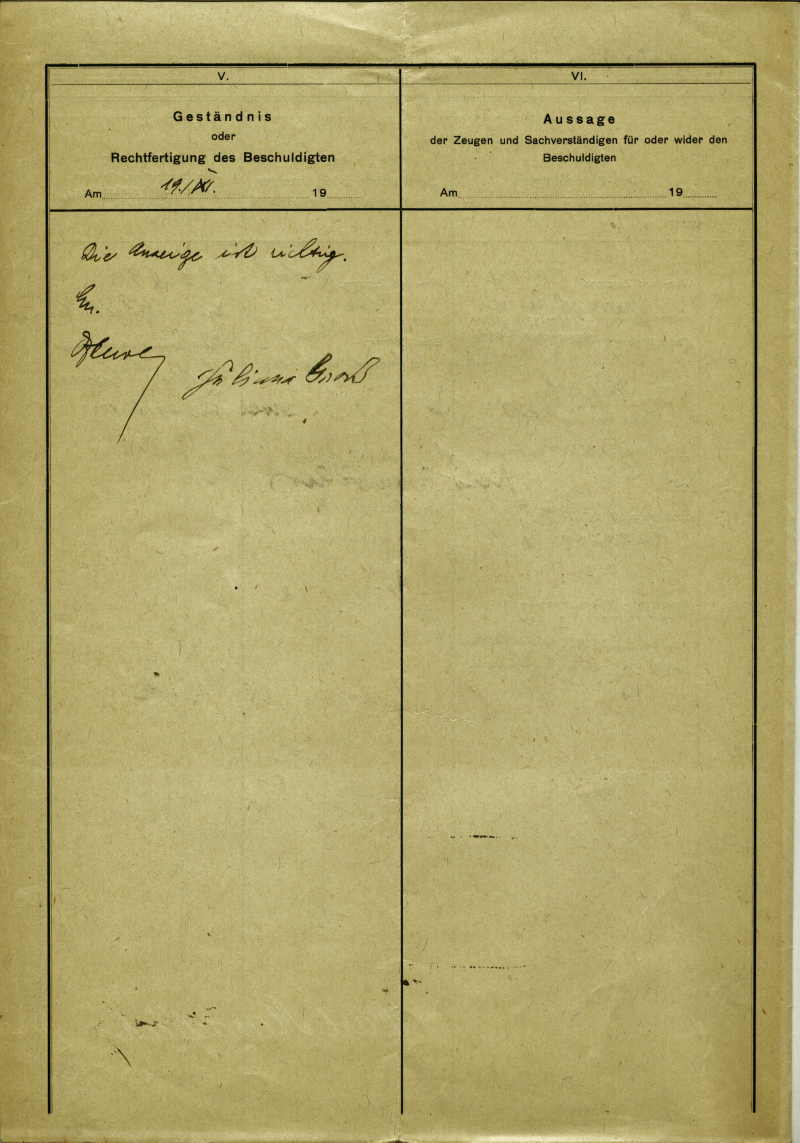 V.
Geständnis
oder
Rechtfertigung des Beschuldigten
Am 19./XI. 19
Die Anzeige ist richtig.
Juliana
VI.
Aussage
der Zeugen und Sachverständigen für oder wider den
Beschuldigten
Am 19